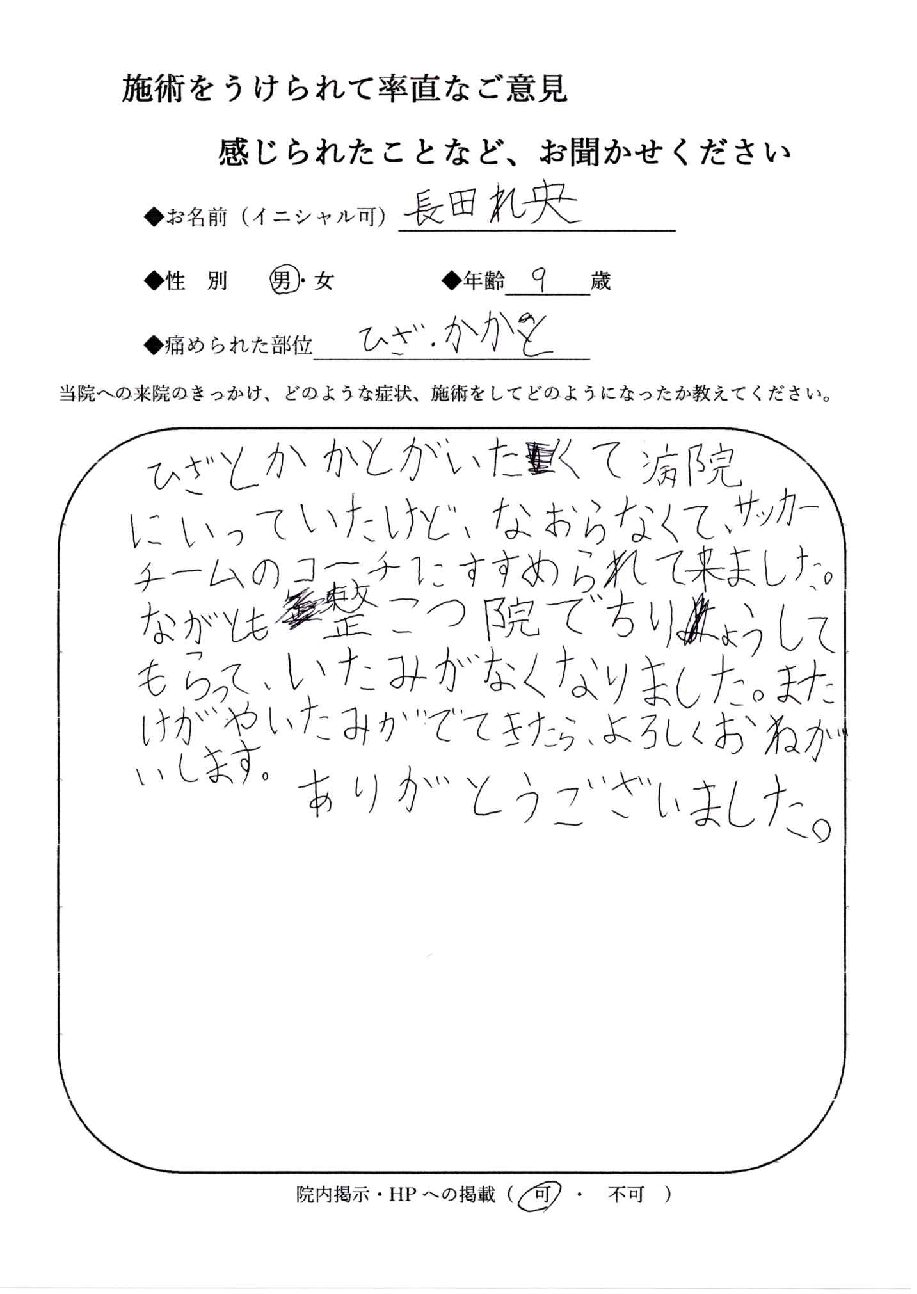 施術をうけられて率直なご意見
感じられたことなど、お聞かせください
◆お名前（イニシャル可） 長田れ央
◆性　別　男・女　◆年齢 9 歳
◆痛められた部位 ひざ・かかと
当院への来院のきっかけ、どのような症状、施術をしてどのようになったか教えてください。
ひざとかかとがいたくて病院
にいっていたけど、なおらなくて、サッカー
チームのコーチにすすめられて来ました。
ながとも整こつ院でちりょうして
もらって、いたみがなくなりました。また
けがやいたみがでてきたら、よろしくおねが
いします。
ありがとうございました。
院内掲示・HPへの掲載（ 可 ・ 不可 ）